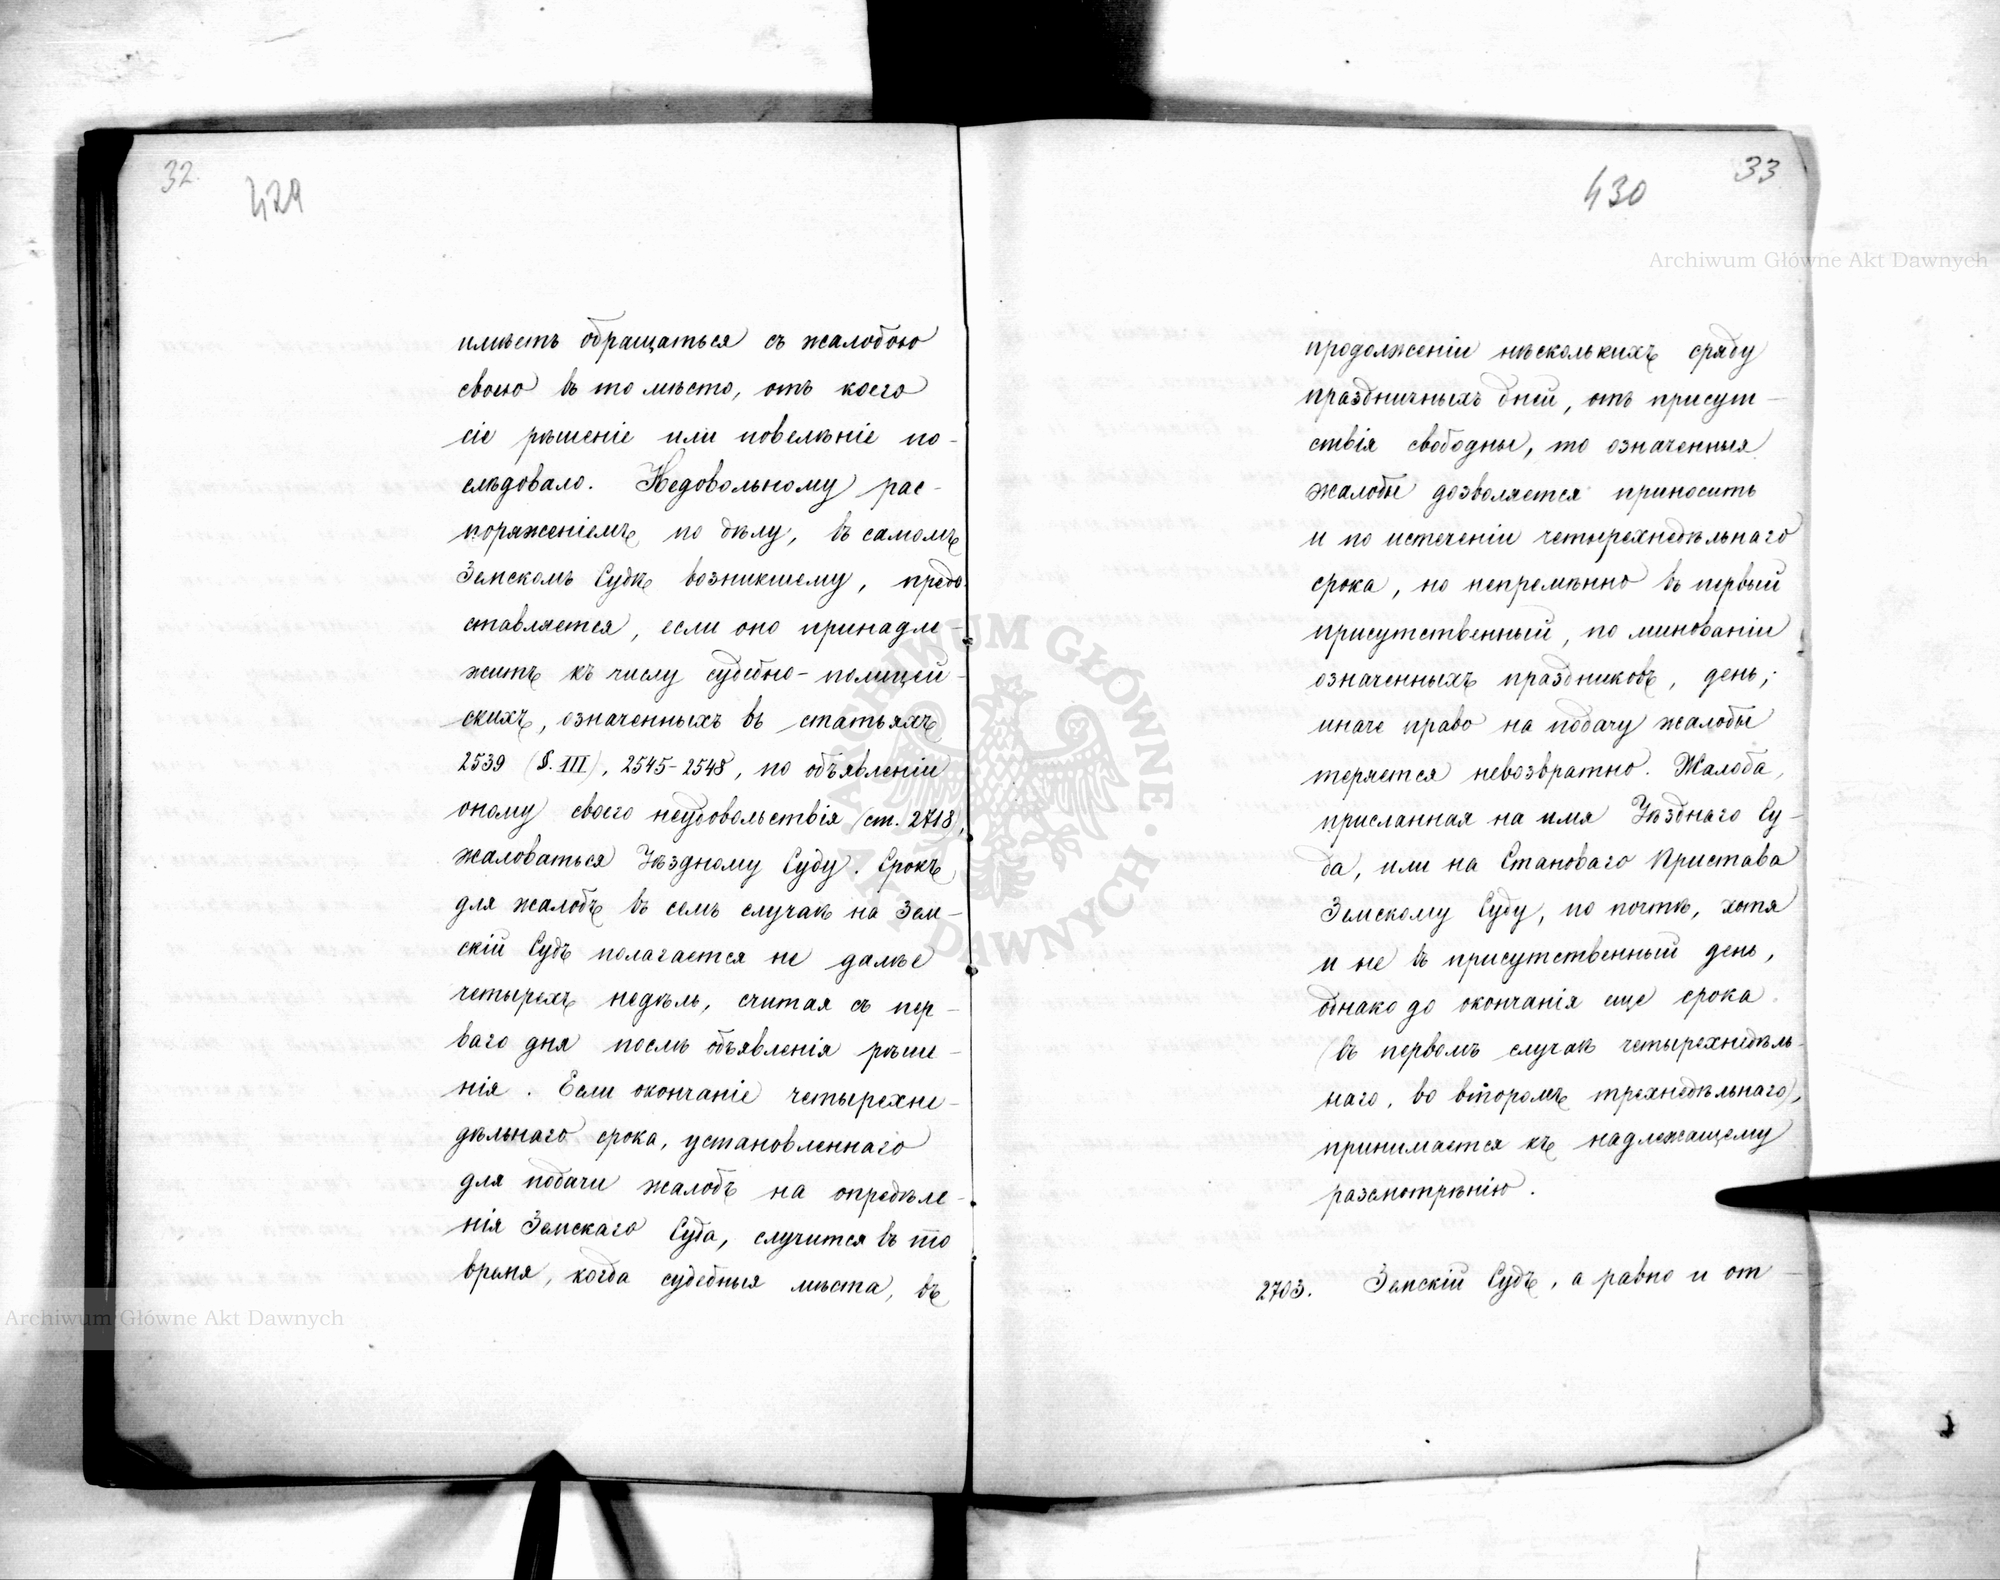 32.
429
имѣетъ обращаться съ жалобою
своею въ то мѣсто, отъ коего
сіе рѣшеніе или повелѣніе по-
слѣдовало. Недовольному рас-
поряженіемъ по дѣлу, въ самомъ
Земскомъ Судѣ возникшему, предо-
ставляется, если оно принадле-
житъ къ числу судебно-полицей-
скихъ, означенныхъ въ статьяхъ
2539 (§. III), 2545-2548, по объявленіи
оному своего неудовольствія (ст. 2718),
жаловаться Уѣздному Суду. Срокъ
для жалобъ въ семъ случаѣ на Зем-
скій Судъ полагается не далѣе
четырехъ недѣль, считая съ пер-
ваго дня послѣ объявленія рѣше-
нія. Если окончаніе четырехне-
дѣльнаго срока, установленнаго
для подачи жалобъ на опредѣле-
нія Земскаго Суда, случится въ то
время, когда судебныя мѣста, въ
33
430
продолженіи нѣсколькихъ сряду
праздничныхъ дней, отъ присут-
ствія свободны, то означенныя
жалобы дозволяется приносить
и по истеченіи четырехнедѣльнаго
срока, но непремѣнно въ первый
присутственный, по минованіи
означенныхъ праздниковъ, день;
иначе право на подачу жалобы
теряется невозвратно. Жалоба,
присланная на имя Уѣзднаго Су-
да, или на Становаго Пристава
Земскому Суду, по почтѣ, хотя
и не въ присутственный день,
однако до окончанія еще срока
(въ первомъ случаѣ четырехнедѣль-
наго, во второмъ трехнедѣльнаго),
принимается къ надлежащему
разсмотрѣнію.
2703. Земскій Судъ, а равно и от-
Archiwum Główne Akt Dawnych
Archiwum Główne Akt Dawnych
ARCHIWUM GŁÓWNE · AKT DAWNYCH ·